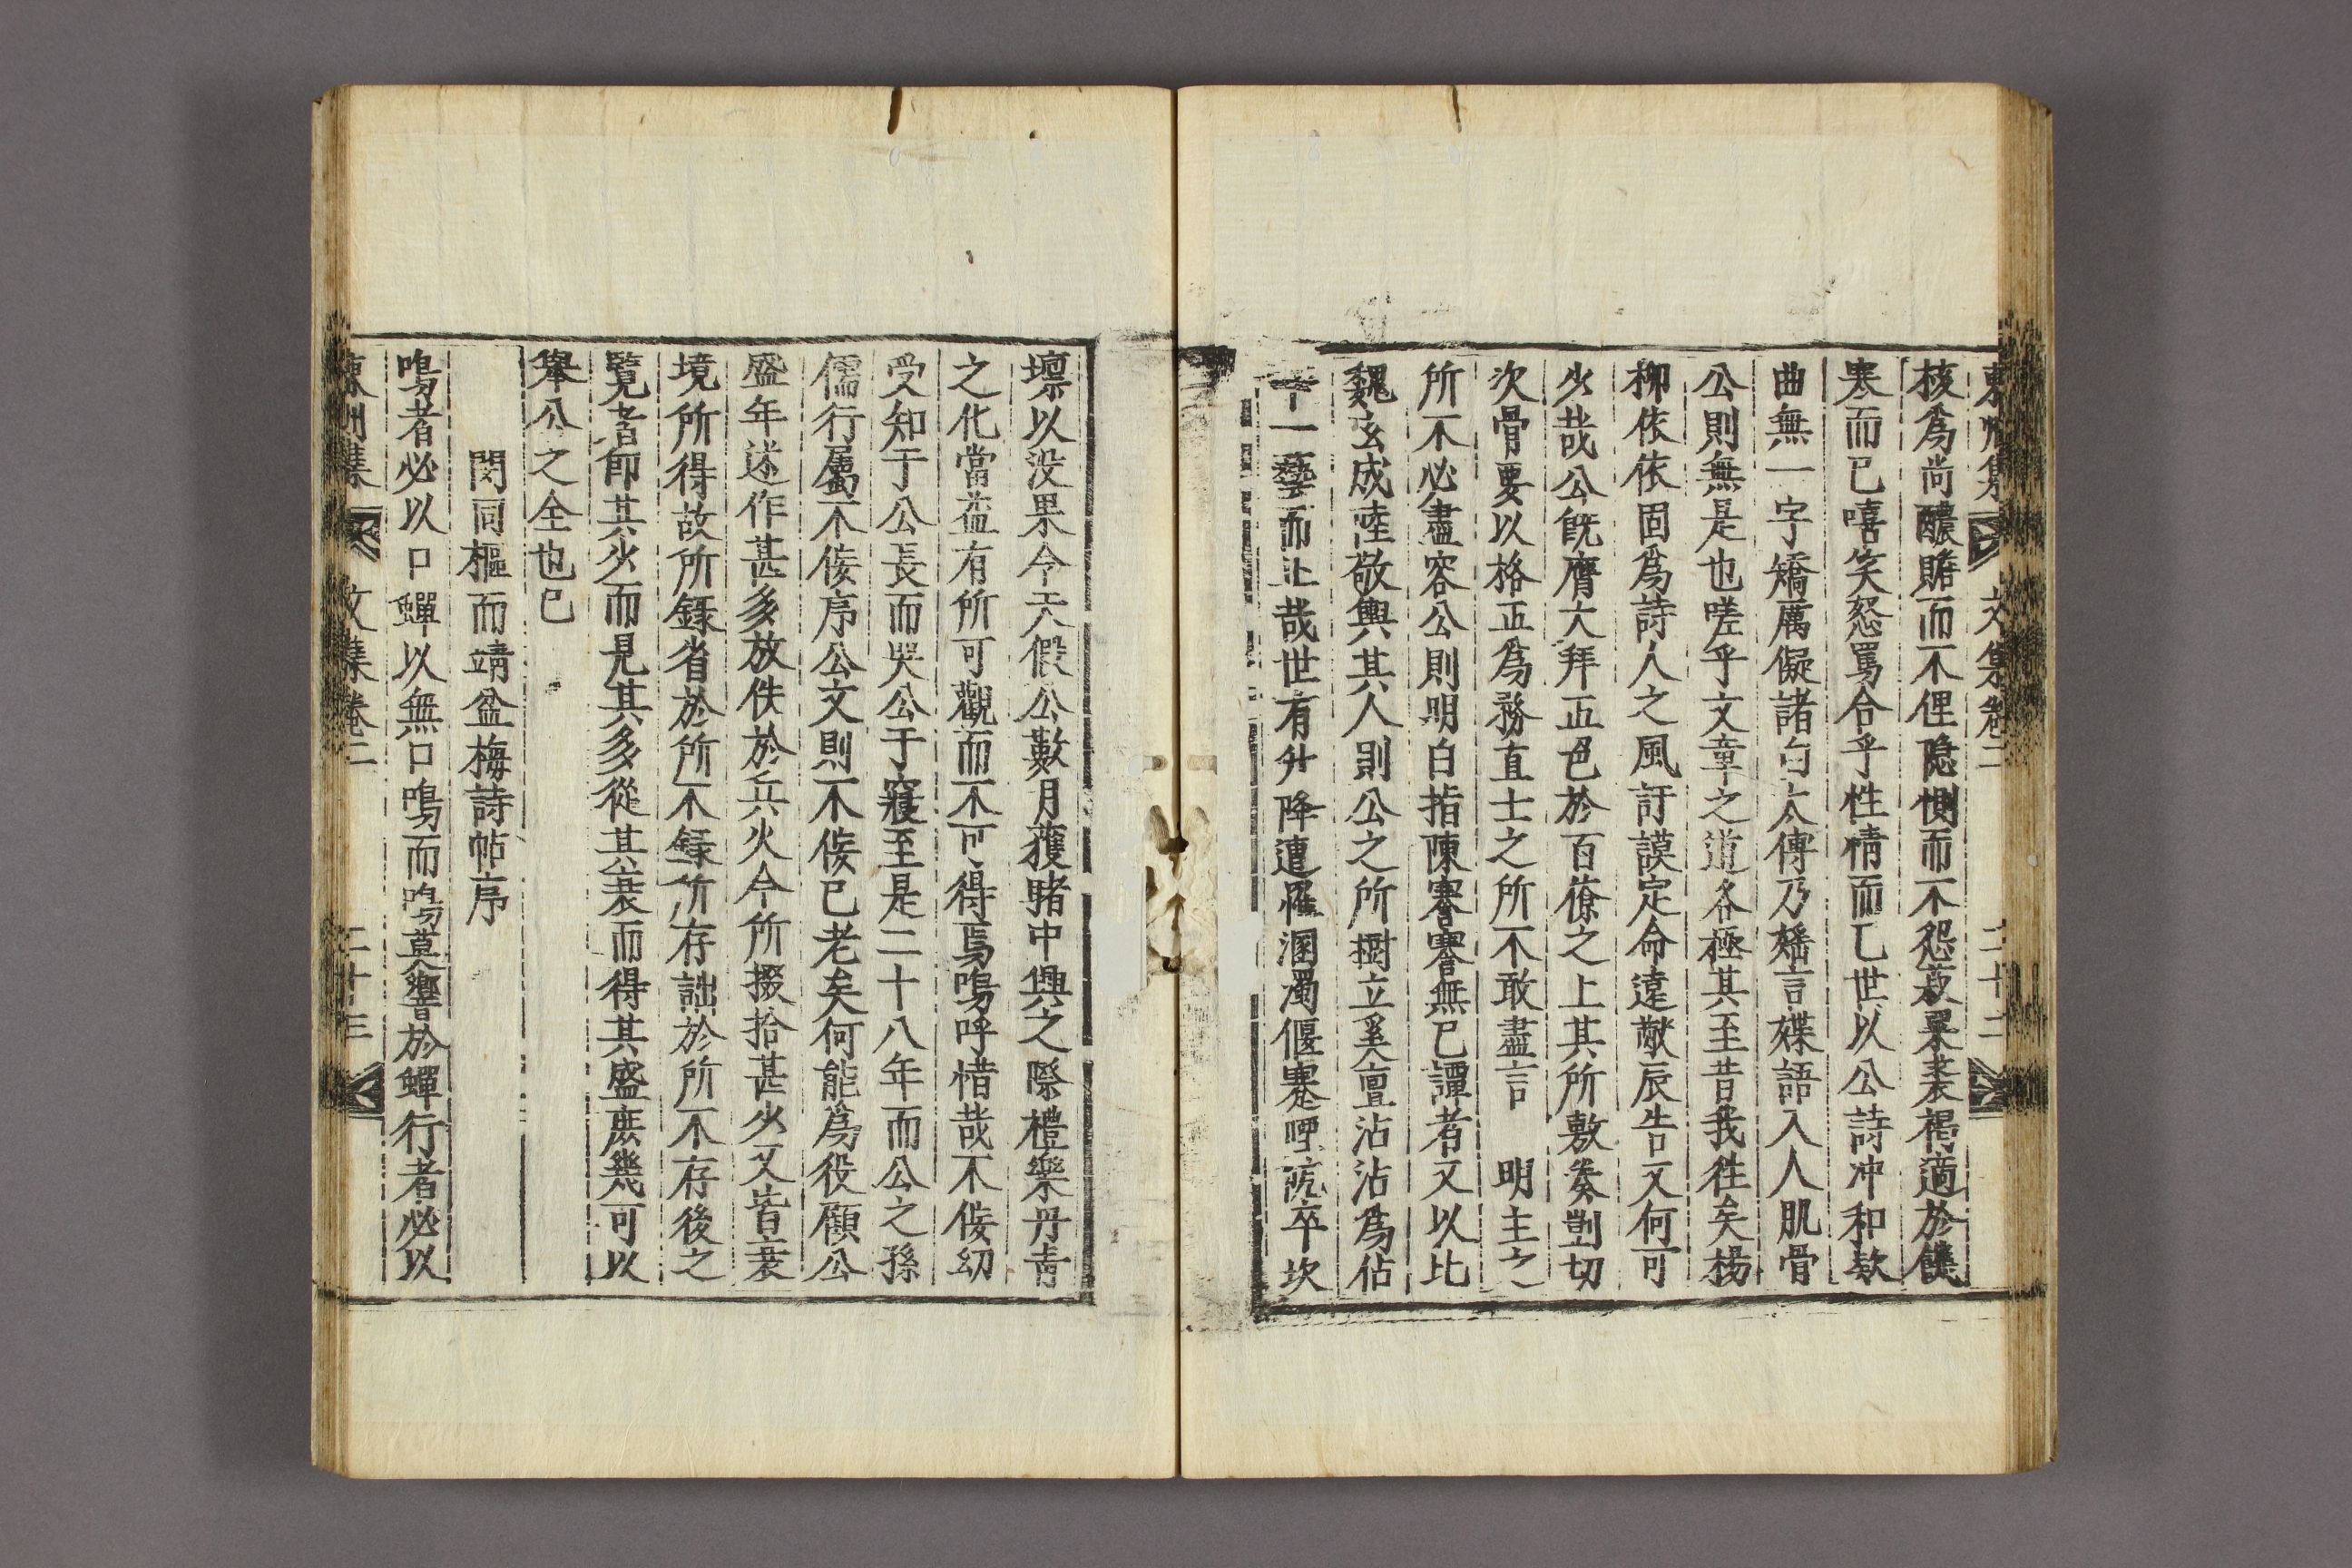 東州集 文集卷二 二十二
核爲尚醲贍而不俚隐惻而不怨裘褐適於饑
寒而已嘻笑怒罵合乎性情而已世以公詩冲和欵
曲無一字矯厲儗諸白太傅乃嫿言媟語入人肌骨
公則無是也嗟乎文章之道各極其至昔我徃矣楊
柳依依固爲詩人之風訏謨定命遠猷辰告又何可
少哉公旣膺大拜正色於百僚之上其所敷奏剴切
次骨要以格正爲務直士之所不敢盡言 明主之
所不必盡容公則明白指陳謇謇無已譚者又以比
魏玄成陸敬輿其人則公之所樹立奚亶沾沾爲佔
𠆸一藝而止哉世有升降遭罹溷濁偃蹇呼阸卒坎
壈以没果令天假公數月獲睹中興之際禮樂丹靑
之化當益有所可觀而不可得焉嗚呼惜哉不佞幼
受知于公長而哭公于寢至是二十八年而公之孫
儒行屬不佞序公文則不佞已老矣何能爲役顧公
盛年述作甚多放佚於兵火今所掇拾甚少又皆衰
境所得故所錄省於所不錄所存詘於所不存後之
覽者卽其少而見其多從其衰而得其盛庶幾可以
舉公之全也已
閔同樞而靖盆梅詩帖序
鳴者必以口蟬以無口鳴而鳴莫響於蟬行者必以
東州集 文集卷二 二十三